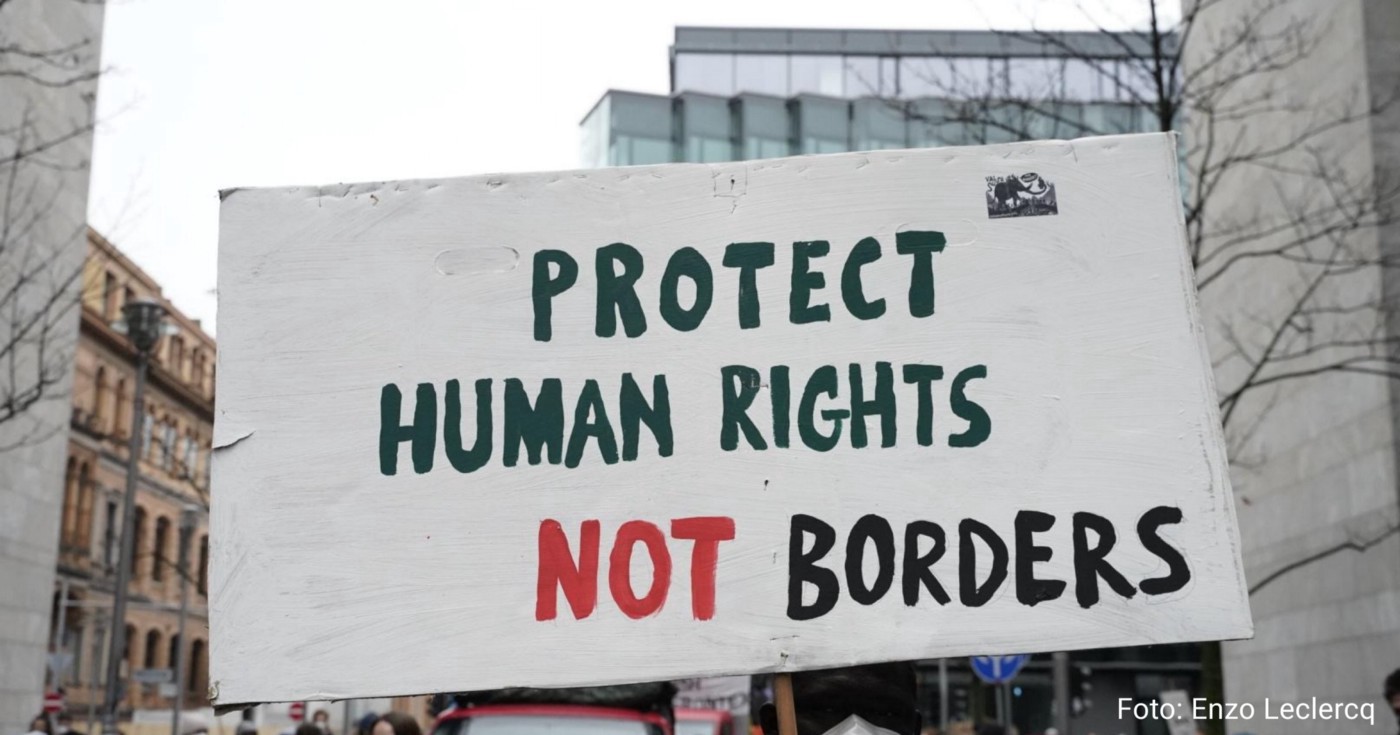 PROTECT
HUMAN RIGHTS
NOT BORDERS
Foto: Enzo Leclercq